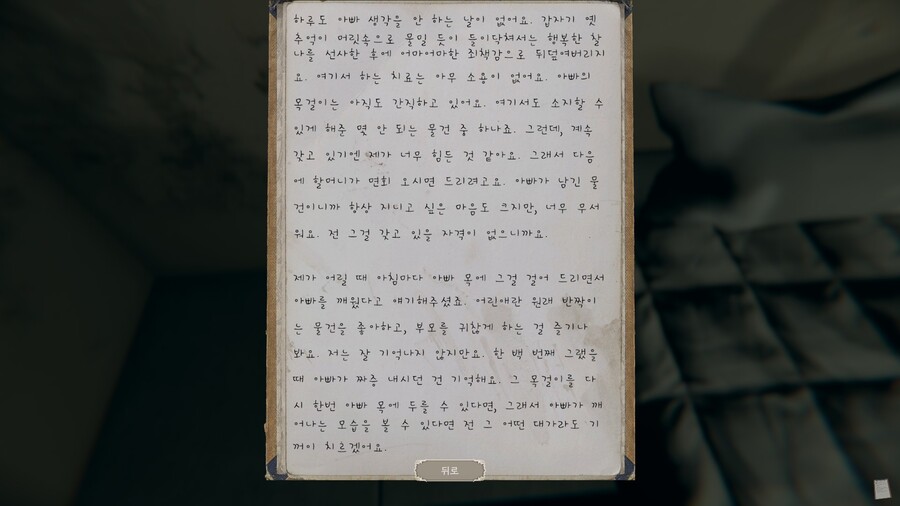 하루도 아빠 생각을 안 하는 날이 없어요. 갑자기 옛
추억이 머릿속으로 물밀 듯이 들이닥쳐서는 행복한 찰
나를 선사한 후에 어마어마한 죄책감으로 뒤덮여버리지
요. 여기서 하는 치료는 아무 소용이 없어요. 아빠의
목걸이는 아직도 간직하고 있어요. 여기서도 소지할 수
있게 해준 몇 안 되는 물건 중 하나죠. 그런데, 계속
갖고 있기엔 제가 너무 힘든 것 같아요. 그래서 다음
에 할머니가 면회 오시면 드리려고요. 아빠가 남긴 물
건이니까 항상 지니고 싶은 마음도 크지만, 너무 무서
워요. 전 그걸 갖고 있을 자격이 없으니까요.
제가 어릴 때 아침마다 아빠 목에 그걸 걸어 드리면서
아빠를 깨웠다고 얘기해주셨죠. 어린애란 원래 반짝이
는 물건을 좋아하고, 부모를 귀찮게 하는 걸 즐기나
봐요. 저는 잘 기억나지 않지만요. 한 백 번째 그랬을
때 아빠가 짜증 내시던 건 기억해요. 그 목걸이를 다
시 한번 아빠 목에 두를 수 있다면, 그래서 아빠가 깨
어나는 모습을 볼 수 있다면 전 그 어떤 대가라도 기
꺼이 치르겠어요.
뒤로